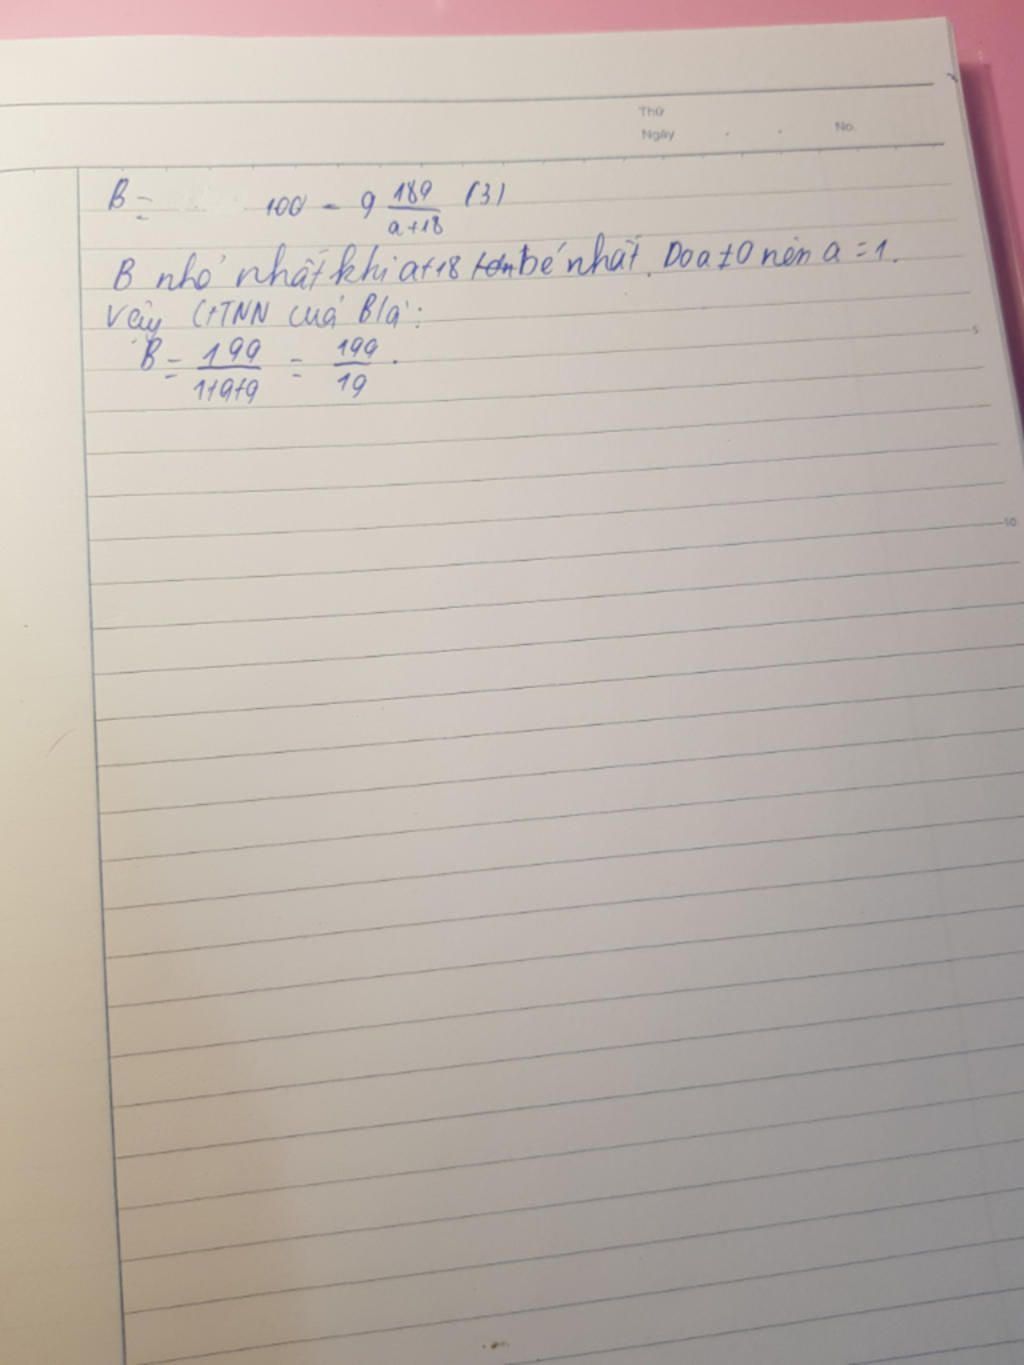 Thứ
Ngày . . No.
B = 100 - 9 189/a+18 (3)
B nhỏ nhất khi a+18 bé nhất. Do a ≠ 0 nên a = 1.
Vậy GTNN của B là:
B = 199/1+9+9 = 199/19.
5
10